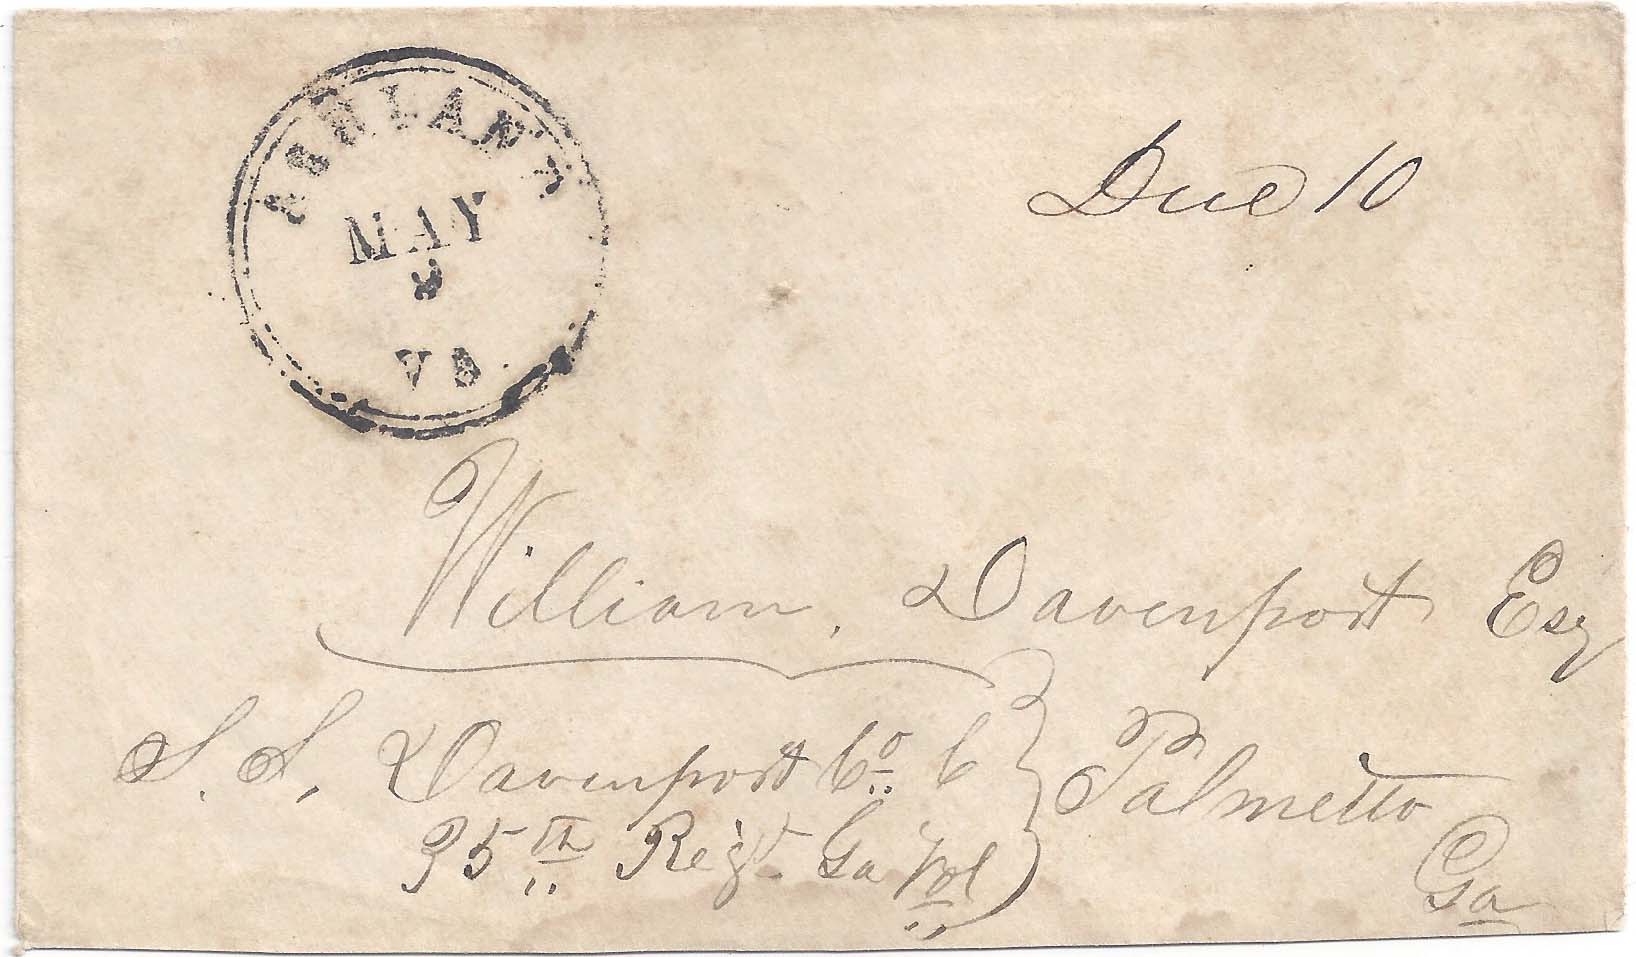 ASHLAND
MAY
9
VA
Due 10
William. Davenport Esq
S. S. Davenport Co. C
35th Regt Ga Vol
Palmetto
Ga